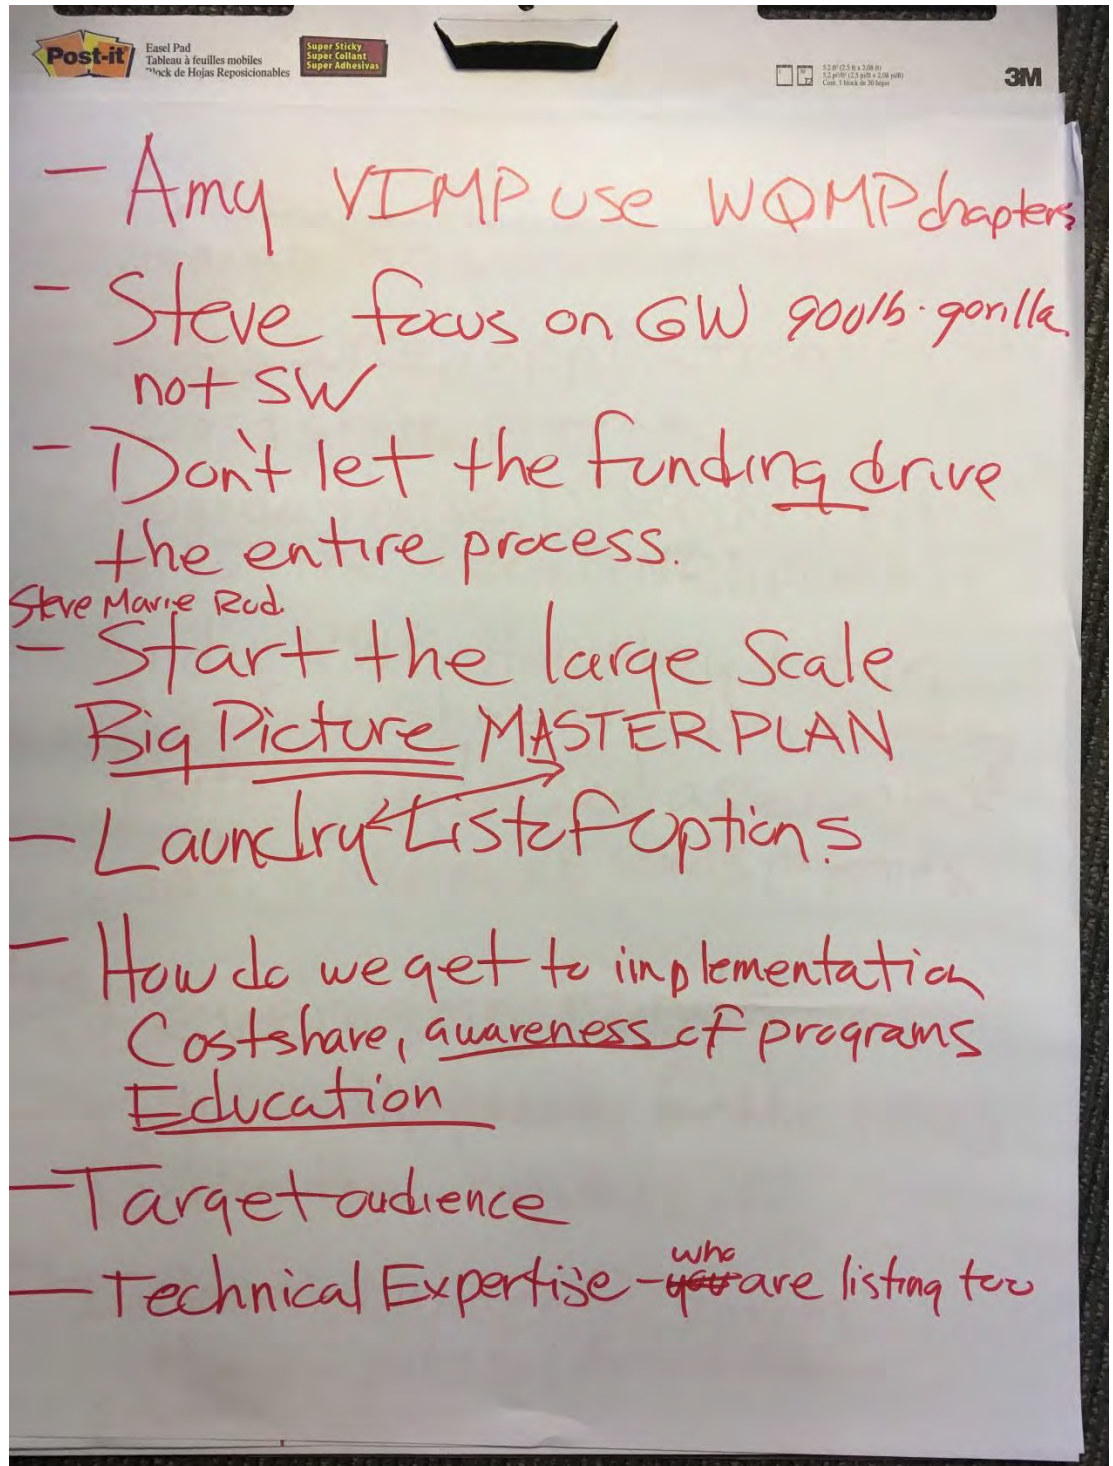 Post-it
Easel Pad
Tableau à feuilles mobiles
Block de Hojas Reposicionables
Super Sticky
Super Collant
Super Adhesivas
3M
- Amy VIMP use WQMP chapters
- Steve focus on GW 900lb. gorilla
not SW
- Don't let the funding drive
the entire process.
Steve Marie Rod
- Start the large Scale
Big Picture MASTER PLAN
- Laundry List of Options
- How do we get to implementation
Costshare, awareness of programs
Education
- Target audience
who
- Technical Expertise - are listing too